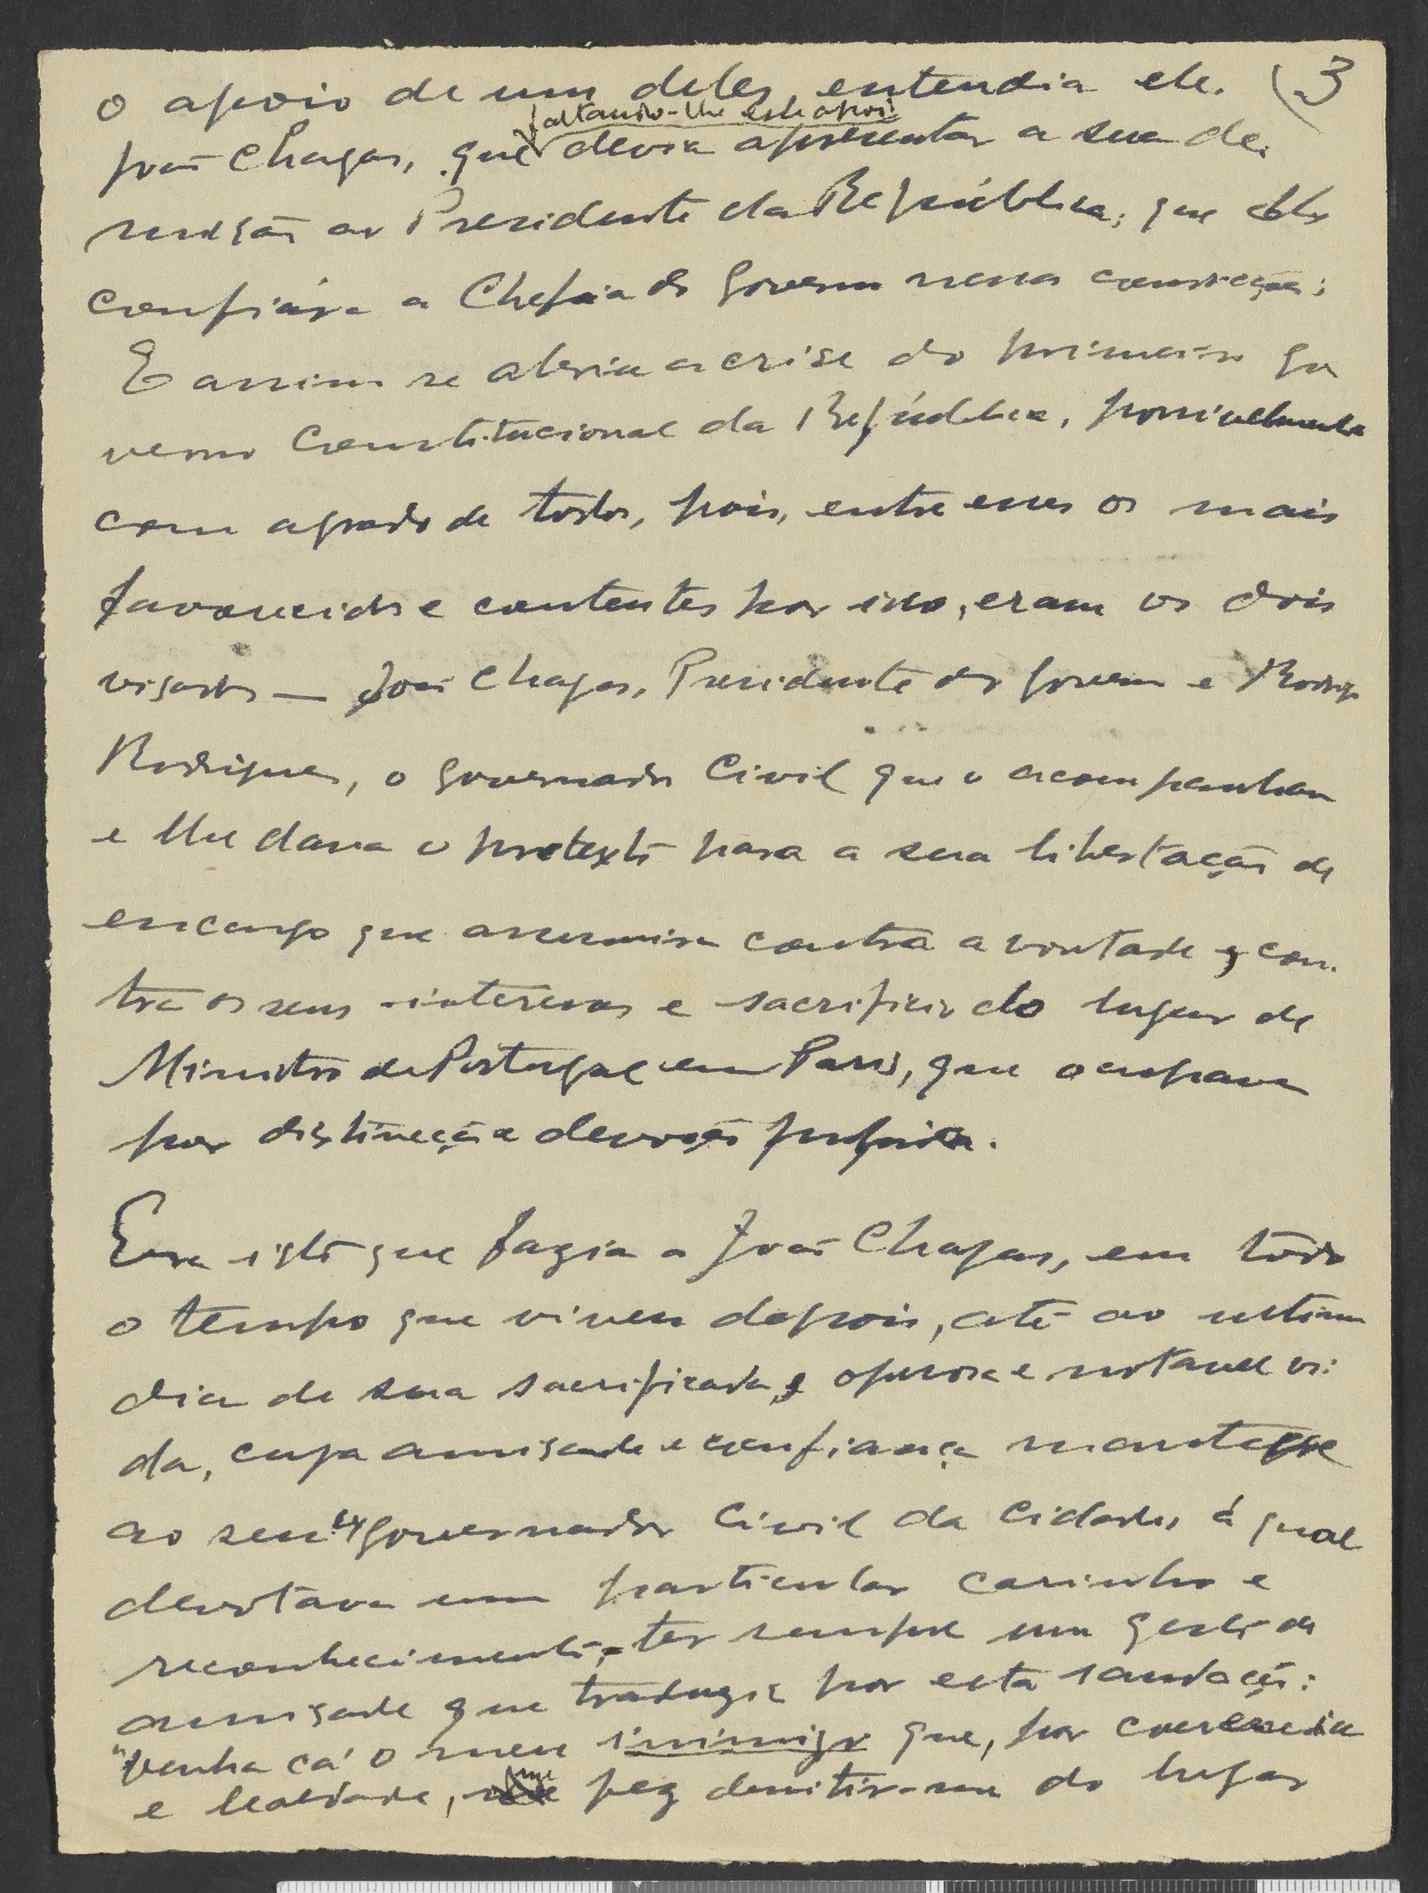 o apoio de um deles, entendia ele. (3
faltando-lhe este apoio
João Chagas, que devia apresentar a sua de-
missão ao Presidente da República, que lhe
confiára a Chefia do Governo nessa convicção;
E assim se abria a crise do primeiro Go
verno Constitucional da República, possivelmente
com agrado de todos, pois, entre esses os mais
favorecidos e contentes por isso, eram os dois
visados — João Chagas, Presidente do Governo e Rodrigo
Rodrigues, o Governador Civil que o acompanhava
e lhe dava o pretexto para a sua libertação do
encargo que assumira contra a vontade e con-
tra os seus interesses e sacrificio do lugar de
Ministro de Portugal em Paris, que ocupava
por distincção e devoção
Era isto que fazia a João Chagas, em todo
o tempo que viveu depois, até ao ultimo
dia de sua sacrificada, operosa e notavel vi-
da, cuja amisade e confiança manteve
ao seu ex Governador Civil da Cidade, á qual
devotava um particular carinho e
reconhecimento, ter sempre um gesto de
amisade que traduzia por esta saudação:
"Venha cá o meu inimigo que, por coerencia
e lealdade, me fez demitir-me do lugar